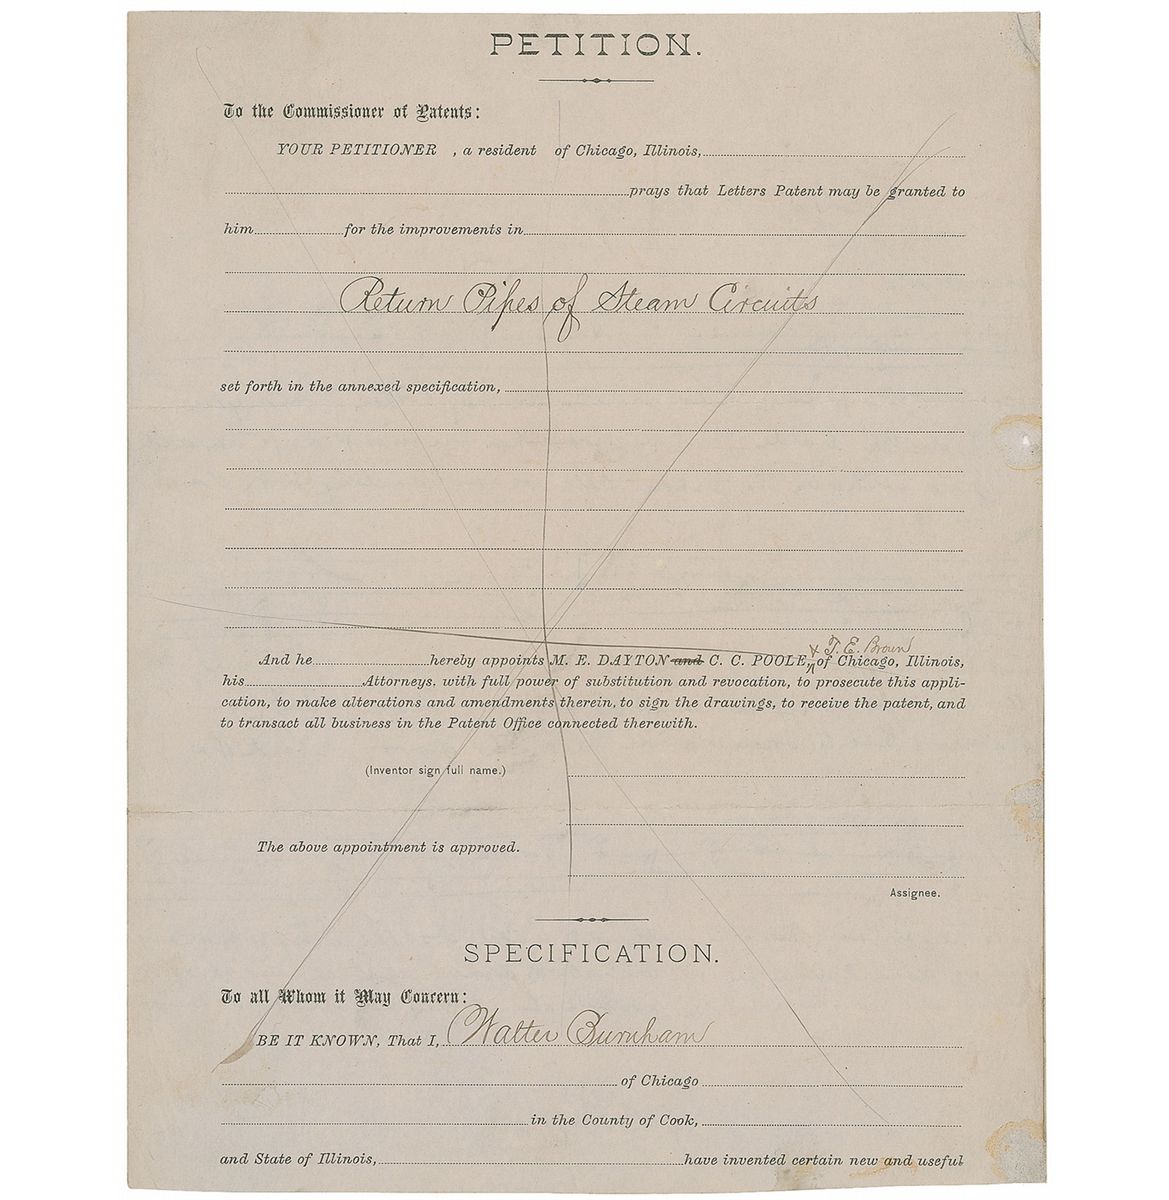 PETITION.
To the Commissioner of Patents:
YOUR PETITIONER , a resident of Chicago, Illinois,
prays that Letters Patent may be granted to
him for the improvements in
Return Pipes of Steam Circuits
set forth in the annexed specification,
& T. E. Brown
And he hereby appoints M. E. DAYTON and C. C. POOLE, of Chicago, Illinois,
his Attorneys. with full power of substitution and revocation, to prosecute this appli-
cation, to make alterations and amendments therein, to sign the drawings, to receive the patent, and
to transact all business in the Patent Office connected therewith.
(Inventor sign full name.)
The above appointment is approved.
Assignee.
SPECIFICATION.
To all Whom it May Concern:
BE IT KNOWN, That I, Walter Burnham
of Chicago
in the County of Cook,
and State of Illinois, have invented certain new and useful